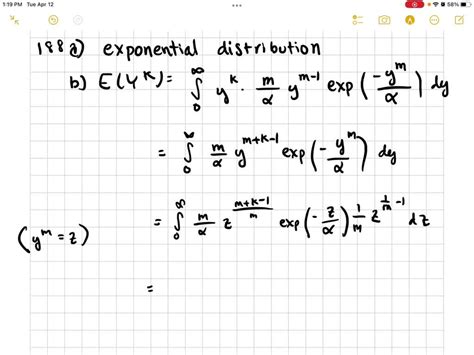 1:19 PM Tue Apr 12 58%
188 a) exponential distribution
b) E(Y^k) = ∫_0^∞ y^k · m/α y^{m-1} exp(-y^m/α) dy
= ∫_0^∞ m/α y^{m+k-1} exp(-y^m/α) dy
(y^m = z) = ∫_0^∞ m/α z^{(m+k-1)/m} exp(-z/α) 1/m z^{1/m - 1} dz
=